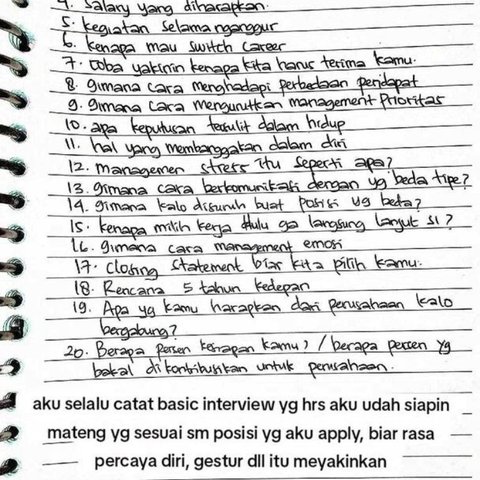 4. Salary yang diharapkan.
5. kegiatan selama nganggur
6. kenapa mau switch career
7. coba yakinin kenapa kita harus terima kamu.
8. gimana cara menghadapi perbedaan pendapat
9. gimana cara mengurutkan management prioritas
10. apa keputusan tersulit dalam hidup
11. hal yang membanggakan dalam diri
12. managemen stress itu seperti apa?
13. gimana cara berkomunikasi dengan yg beda tipe?
14. gimana kalo disuruh buat posisi yg beda?
15. kenapa milih kerja dulu ga langsung lanjut S1?
16. gimana cara management emosi
17. closing statement biar kita pilih kamu.
18. Rencana 5 tahun kedepan
19. Apa yg kamu harapkan dari perusahaan kalo
bergabung?
20. Berapa persen kesiapan kamu, / berapa persen yg
bakal di kontribusikan untuk perusahaan.
aku selalu catat basic interview yg hrs aku udah siapin
mateng yg sesuai sm posisi yg aku apply, biar rasa
percaya diri, gestur dll itu meyakinkan